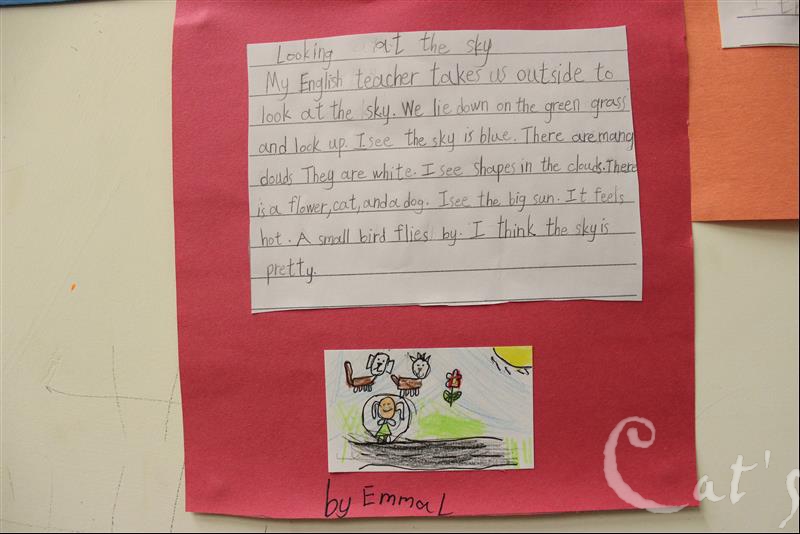 Looking at the sky
My English teacher takes us outside to
look at the sky. We lie down on the green grass
and look up. I see the sky is blue. There are many
clouds They are white. I see shapes in the clouds. There
is a flower, cat, and a dog. I see the big sun. It feels
hot. A small bird flies by. I think the sky is
pretty.
by Emma L
Cat's